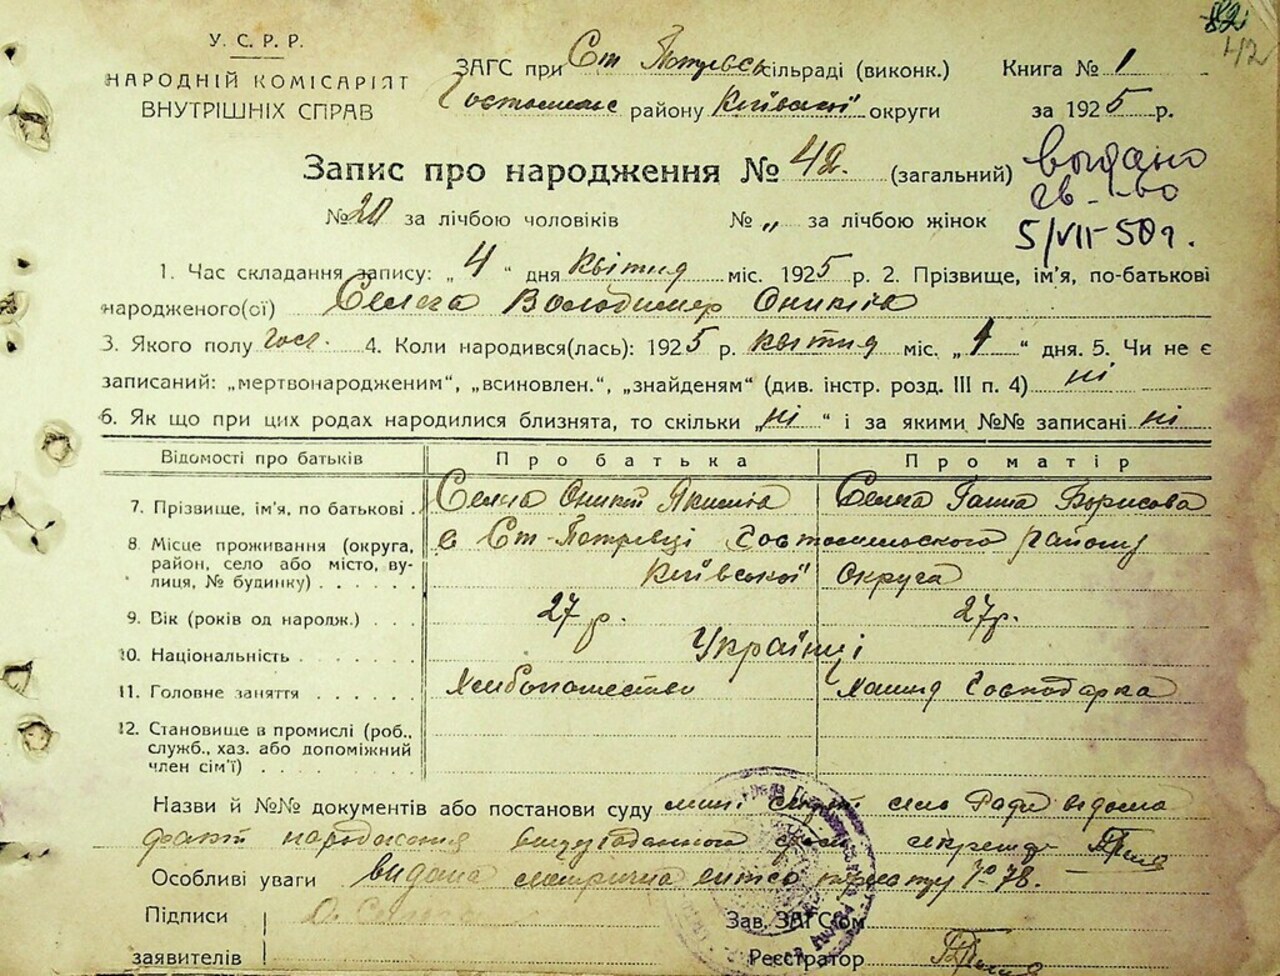 82
42
У. С. Р. Р.
НАРОДНІЙ КОМІСАРІЯТ
ВНУТРІШНІХ СПРАВ
ЗАГС при Ст Петрівсь сільраді (виконк.) Книга № 1
Гостомльс району Київської округи за 1925 р.
Запис про народження № 42. (загальний)
видано
св-во
5/VII-50 г.
№ 20 за лічбою чоловіків № „ за лічбою жінок
1. Час складання запису: „ 4 “ дня Квітня міс. 1925 р. 2. Прізвище, ім'я, по-батькові
народженого(ої) Володимир
3. Якого полу 4. Коли народився(лась): 1925 р. квітня міс. „ “ дня. 5. Чи не є
записаний: „мертвонародженим“, „всиновлен.“, „знайденям“ (див. інстр. розд. III п. 4) ні
6. Як що при цих родах народилися близнята, то скільки „ ні “ і за якими №№ записані ні
Відомості про батьків Про батька Про матір
7. Прізвище, ім'я, по батькові . Ганна Борисова
8. Місце проживання (округа, район, село або місто, вулиця, № будинку) . . . . . с Ст-Петрівці району
Київської Округа
9. Вік (років од народж.) . . . 27 р. 27 р.
10. Національність . . . . . . . Українці
11. Головне заняття . . . . . . Хлибопашество Хатня Господарка
12. Становище в промислі (роб.,
служб., хаз. або допоміжний
член сім'ї) . . . . . . . . .
Назви й №№ документів або постанови суду село Ради відома
факт народження вищезгаданного секретар
Особливі уваги видана метрична №78.
Підписи О.
заявителів
Зав. ЗАГС'ом
Реєстратор